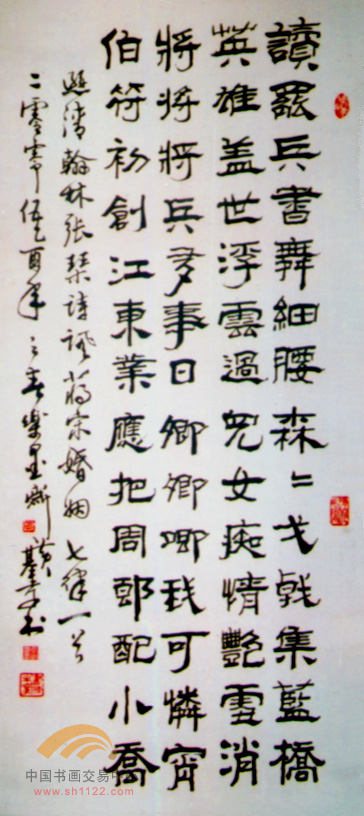 讀罷兵書舞細腰森〻戈戟集藍橋
英雄盖世浮雲過兒女痴情艷雪消
將將將兵多事日卿卿唧我可憐宵
伯符初創江東業應把周郎配小喬
清翰林張琴詩諷蔣宋婚姻七律一首
二零零伍乙酉年之春
中国书画交易中
www.sh1122.com